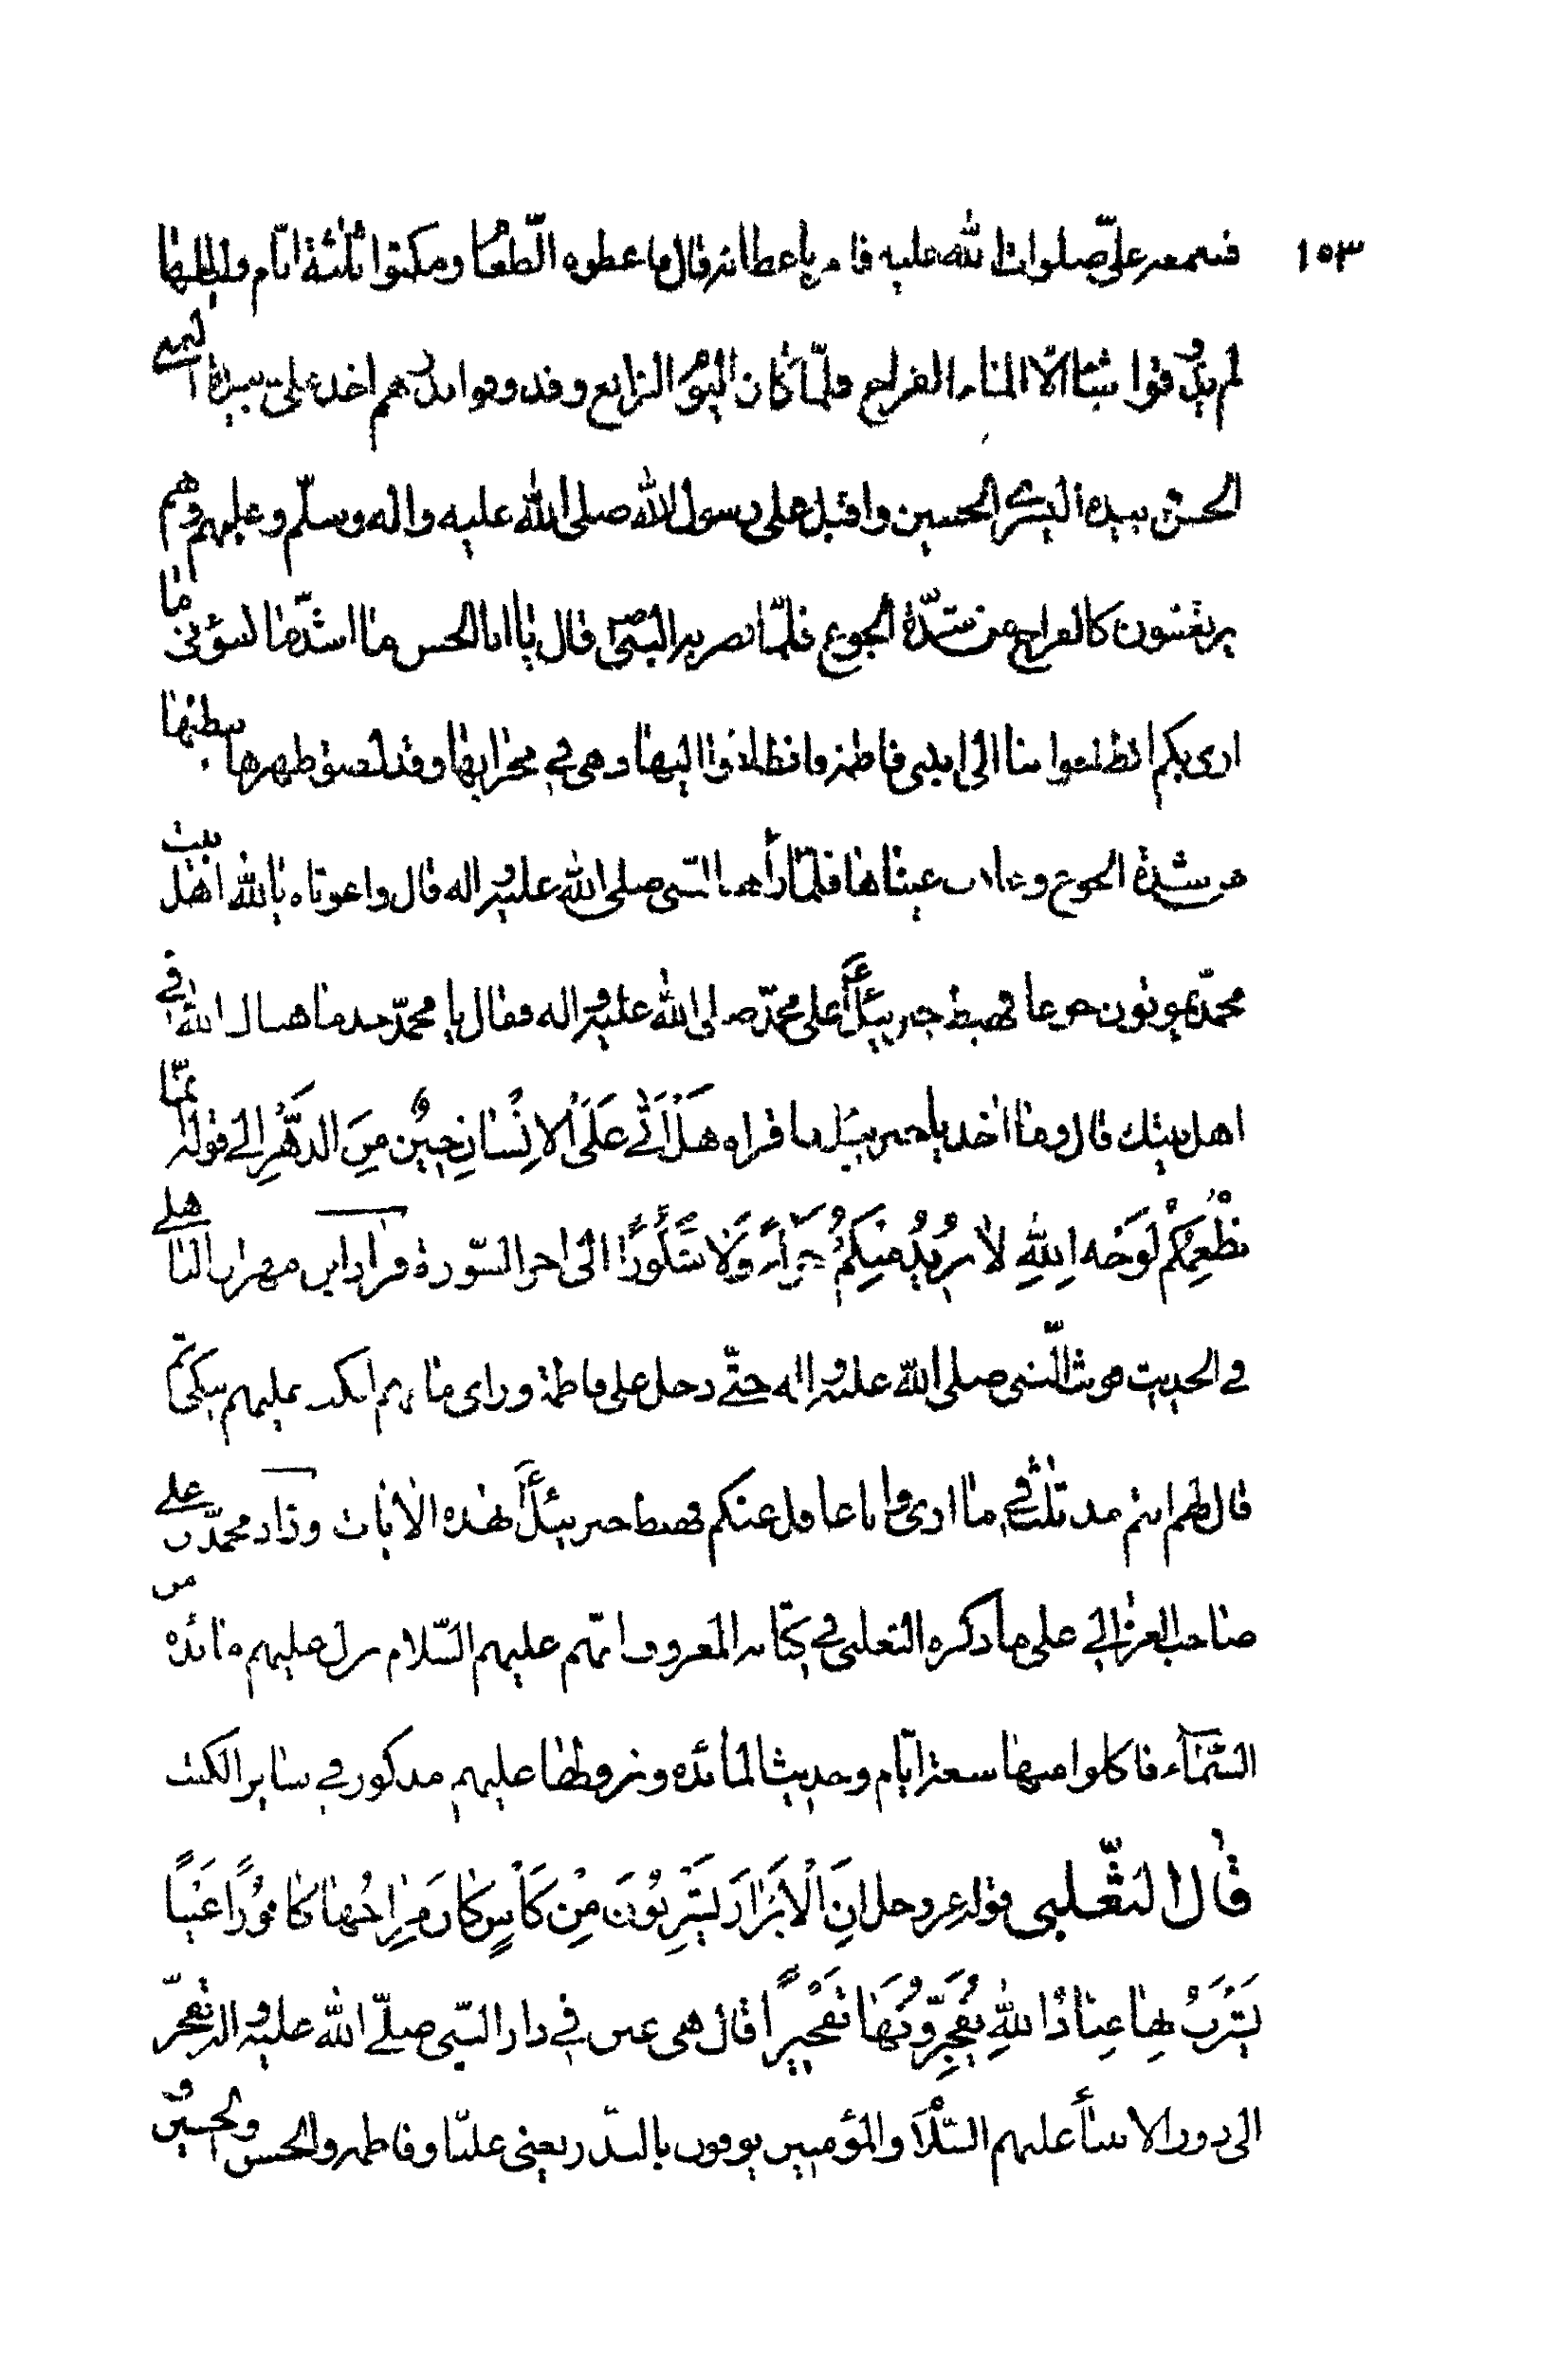 ١٥٣
فسمعه علىّ صلوات الله عليه فامر باعطائه قال فاعطوه الطّعام ومكثوا ثلثة ايّام ولياليها
لم يذوقوا شيئا الّا الماء القراح فلمّا كان اليوم الرّابع وقد وفوا بنذرهم اخذ علىّ بيده اليمنى
الحسن وبيده اليسرى الحسين واقبل على رسول الله صلى الله عليه واله وسلّم وعليهم وهم
يرتعشون كالفراخ من شدّة الجوع فلمّا بصر به النبىّ ص قال يا ابا الحسن ما اشدّ ما يسؤنى ما
ارى بكم انطلقوا بنا الى ابنتى فاطمة فانطلقوا اليها وهى فى محرابها وقد لصق ظهرها ببطنها
من شدّة الجوع وغارت عيناها فلمّا رأها النّبى صلى الله عليه واله قال واغوثاه يا لله اهل بيت
محمّد يموتون جوعا فهبط جبرئيلؑ على محمّد صلى الله عليه واله فقال يا محمّد خذ ما هناك الله فى
اهل بيتك قال وما اخذ يا جبرئيل فاقراه هَلْ اَتٰى عَلَى الْاِنْسَانِ حِينٌ مِنَ الدَّهْرِ الى قوله اِنَّمٰا
نُطْعِمُكُمْ لِوَجْهِ اللّٰهِ لاٰ نُرِيدُ مِنْكُمْ جَزَاءً وَلاٰ شُكُوْرًا الى اخر السّورة وزاد ابن مهران الباهلى
فى الحديث فوثب النّبى صلى الله عليه واله حتّى دخل على فاطمة وراى ما بهم انكب عليهم يبكى ثم
قال لهم انتم منذ ثلث فى ما ارى وانا غافل عنكم فهبط جبرئيلؑ بهذه الاٰيات وزاد محمّد بن على
صاحب الغزالى على ما ذكره الثعلبى فى كتابه المعروف انّهم عليهم السّلام نزل عليهم مائدة من
السّماء فاكلوا منها سبعة ايّام وحديث المائدة ونزولها عليهم مذكور فى ساير الكتب
قال الثّعلبى قوله عز وجل اِنَّ الْاَبْرَارَ يَشْرَبُوْنَ مِنْ كَأْسٍ كَانَ مِزَاجُهٰا كَافُوْرًا عَيْنًا
يَشْرَبُ بِهٰا عِبَادُ اللّٰهِ يُفَجِّرُوْنَهٰا تَفْجِيْرًا قال هى عين فى دار النّبى صلّى الله عليه واله تفجّر
الى دور الانبياء عليهم السّلام والمؤمنين يوفون بالنّذر يعنى عليّا وفاطمه والحسن والحسين و